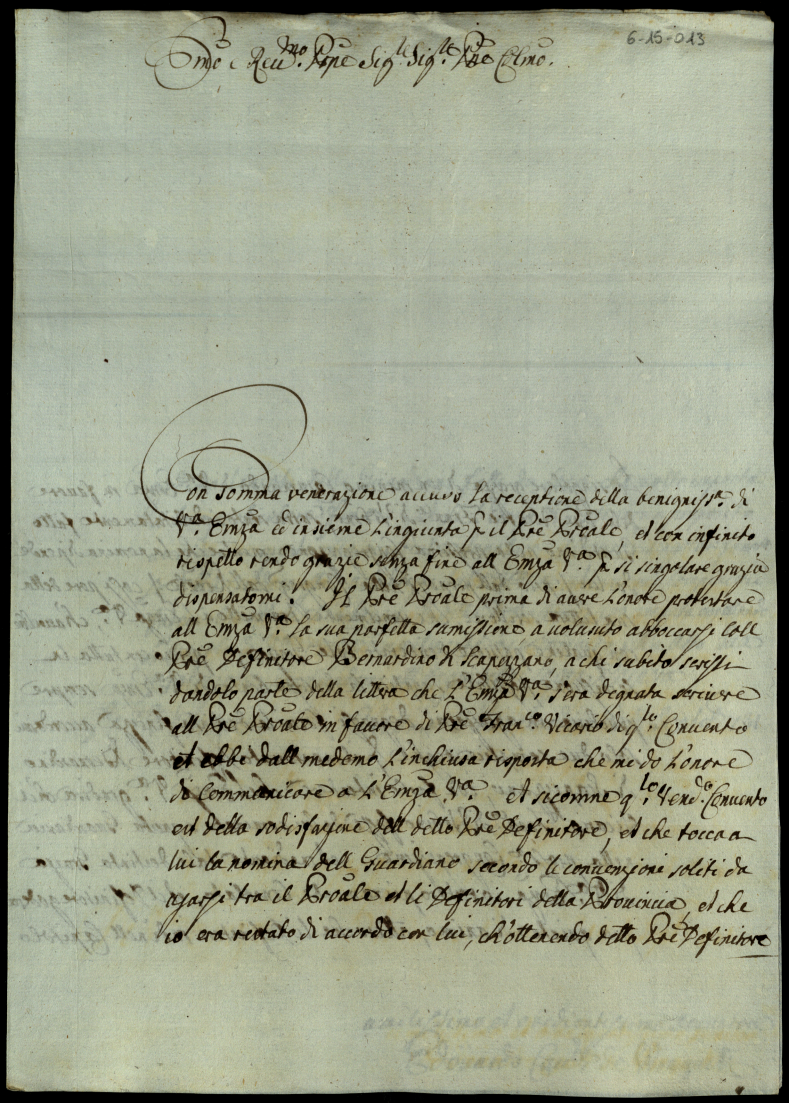 6-15-013
Emo e Reu:mo Prpe Sigre Sigre Pne Colmo.
Con somma venerazione accuso la receptione della benigniss:a di
V:a Emza et insieme l'ingiunta p il Pre Proale, et con infinito
rispetto rendo grazie senza fine all Emza V:a p si singolare grazia
dispensatomi. Il Pre Proale prima di avere l'onore protestare
all Emza V:a la sua parfetta sumissione a volusuto abboccarsi coll
Pre Definitore Bernardino di Scapezzano, a chi subito scrissi
dandolo parte della littera che L'Emza V:a s'era degnata scrivere
all Pre Proale in favore di Pre Fran:co Vicario di q:to Convento
et ebbe dall medemo l'inchiusa risposta che mi do l'onore
di Communicare a L'Emza V:a et sicomme q:to Vend:o Convento
est della sodisfazione dell detto Pre Definitore, et che tocca a
lui la nomina dell Guardiano secondo le convenzioni soliti da
farsi tra il Proale et li Definitori della Provincia, et che
io era restato di accordo con lui, ch'ottenendo detto Pre Definitore